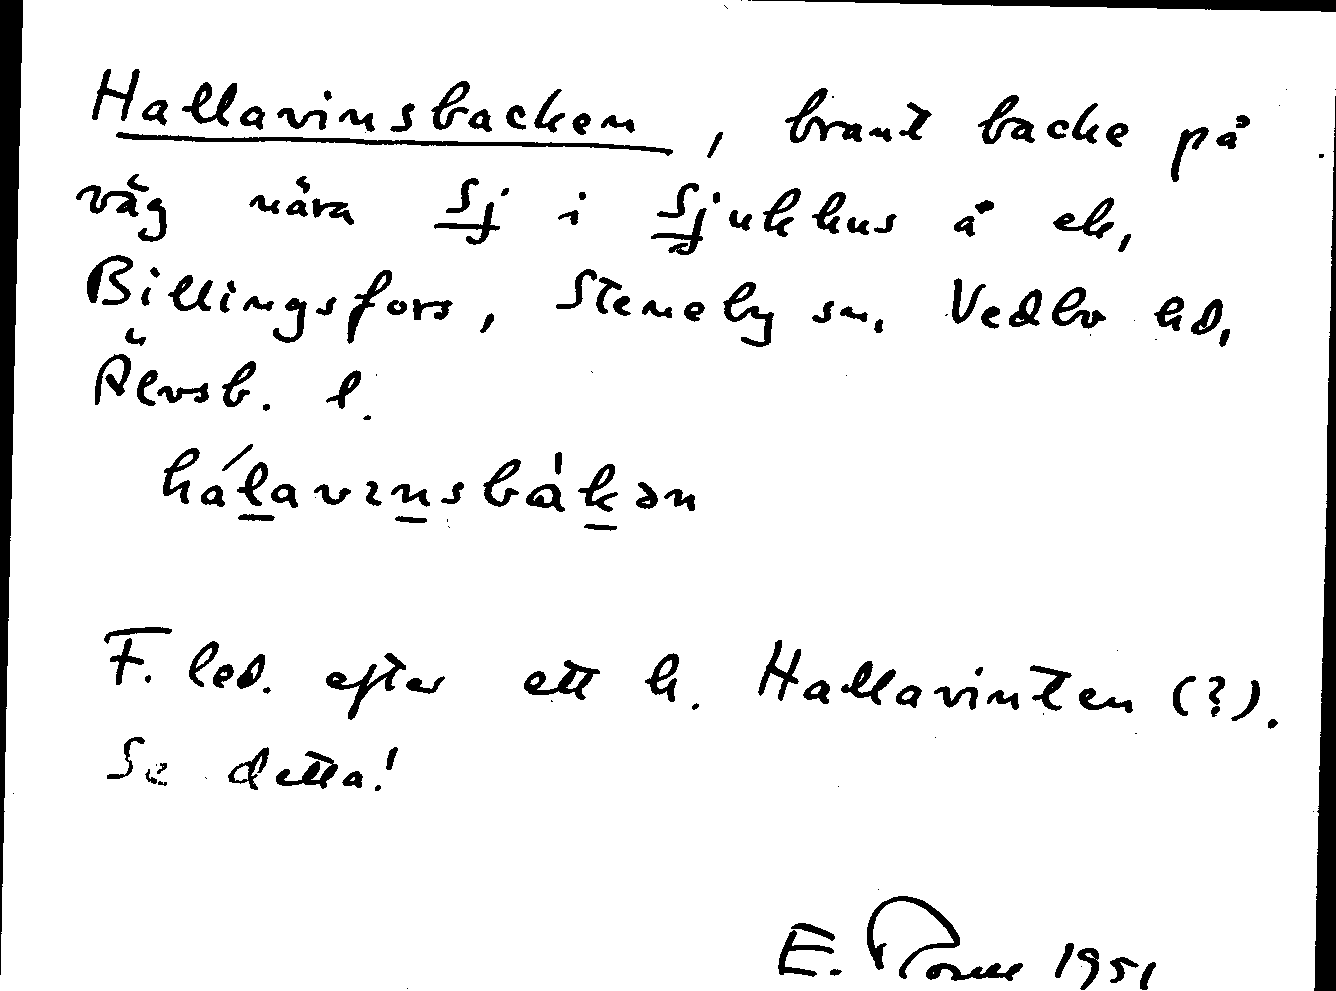 Hallavinsbacken, brant backe på
väg nära Sj i Sjukhus å ek,
Billingsfors, Steneby sn. Vedbo hd,
Älvsb. l.
hálavɪnsbàkən
F. led. efter ett h. Hallavinten (?).
Se detta!
E. 1951